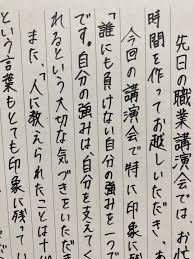 先日の職業講演会では、お忙
時間を作ってお越しいただき、あ
今回の講演会で特に印象に
「誰にも負けない自分の強みを一つで
です。自分の強みは、自分を支えてく
れるという大切な気づきをいただき
また、「人に教えられたことは十パ
という言葉もとても印象に残ってい